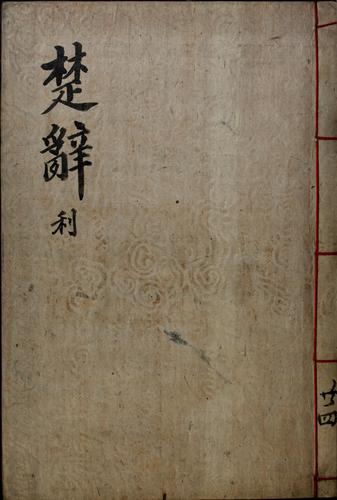 楚辭
利
廿四